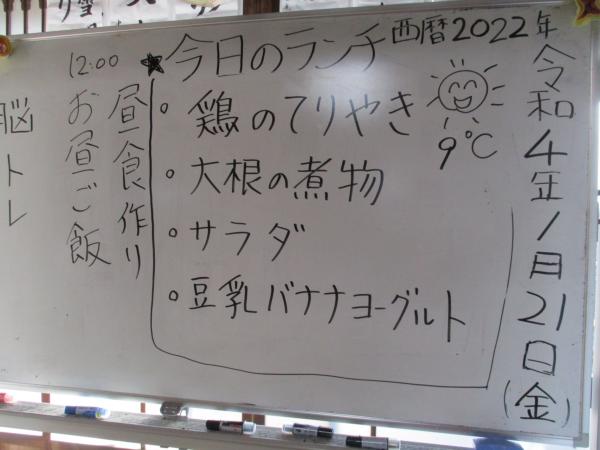 西暦2022年
令和4年1月21日(金)
9℃
★今日のランチ
・鶏のてりやき
・大根の煮物
・サラダ
・豆乳バナナヨーグルト
昼食作り
12:00
お昼ご飯
脳トレ